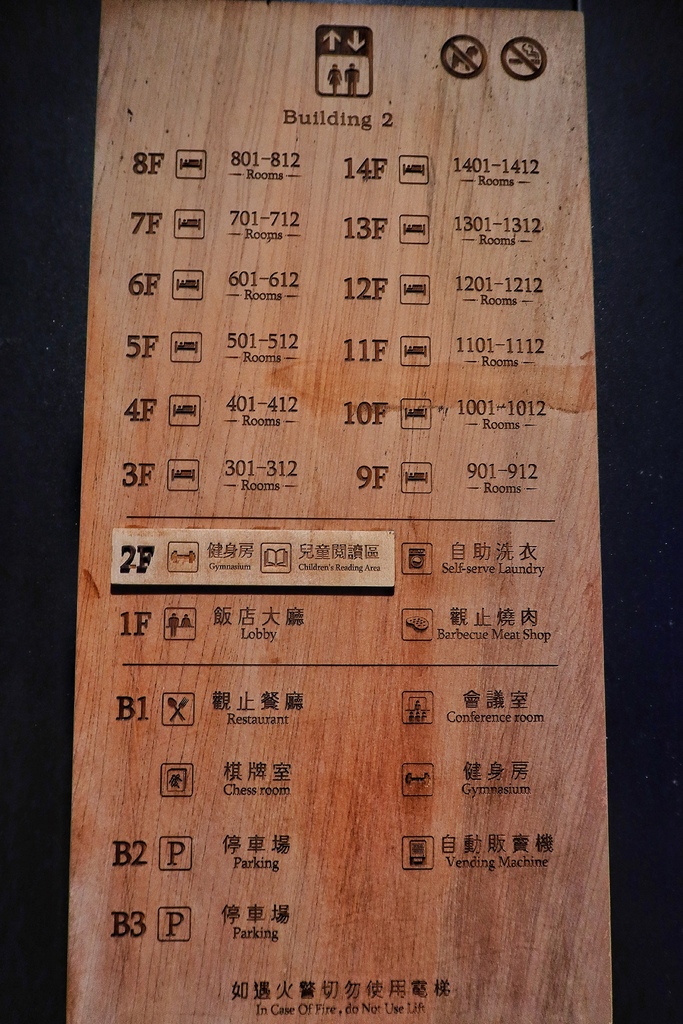 Building 2
8F 801-812 14F 1401-1412
Rooms Rooms
7F 701-712 13F 1301-1312
Rooms Rooms
6F 601-612 12F 1201-1212
Rooms Rooms
5F 501-512 11F 1101-1112
Rooms Rooms
4F 401-412 10F 1001-1012
Rooms Rooms
3F 301-312 9F 901-912
Rooms Rooms
2F 健身房 兒童閱讀區 自助洗衣
Gymnasium Children's Reading Area Self-serve Laundry
1F 飯店大廳 觀止燒肉
Lobby Barbecue Meat Shop
B1 觀止餐廳 會議室
Restaurant Conference room
棋牌室 健身房
Chess room Gymnasium
B2 P 停車場 自動販賣機
Parking Vending Machine
B3 P 停車場
Parking
如遇火警切勿使用電梯
In Case Of Fire, do Not Use Lift